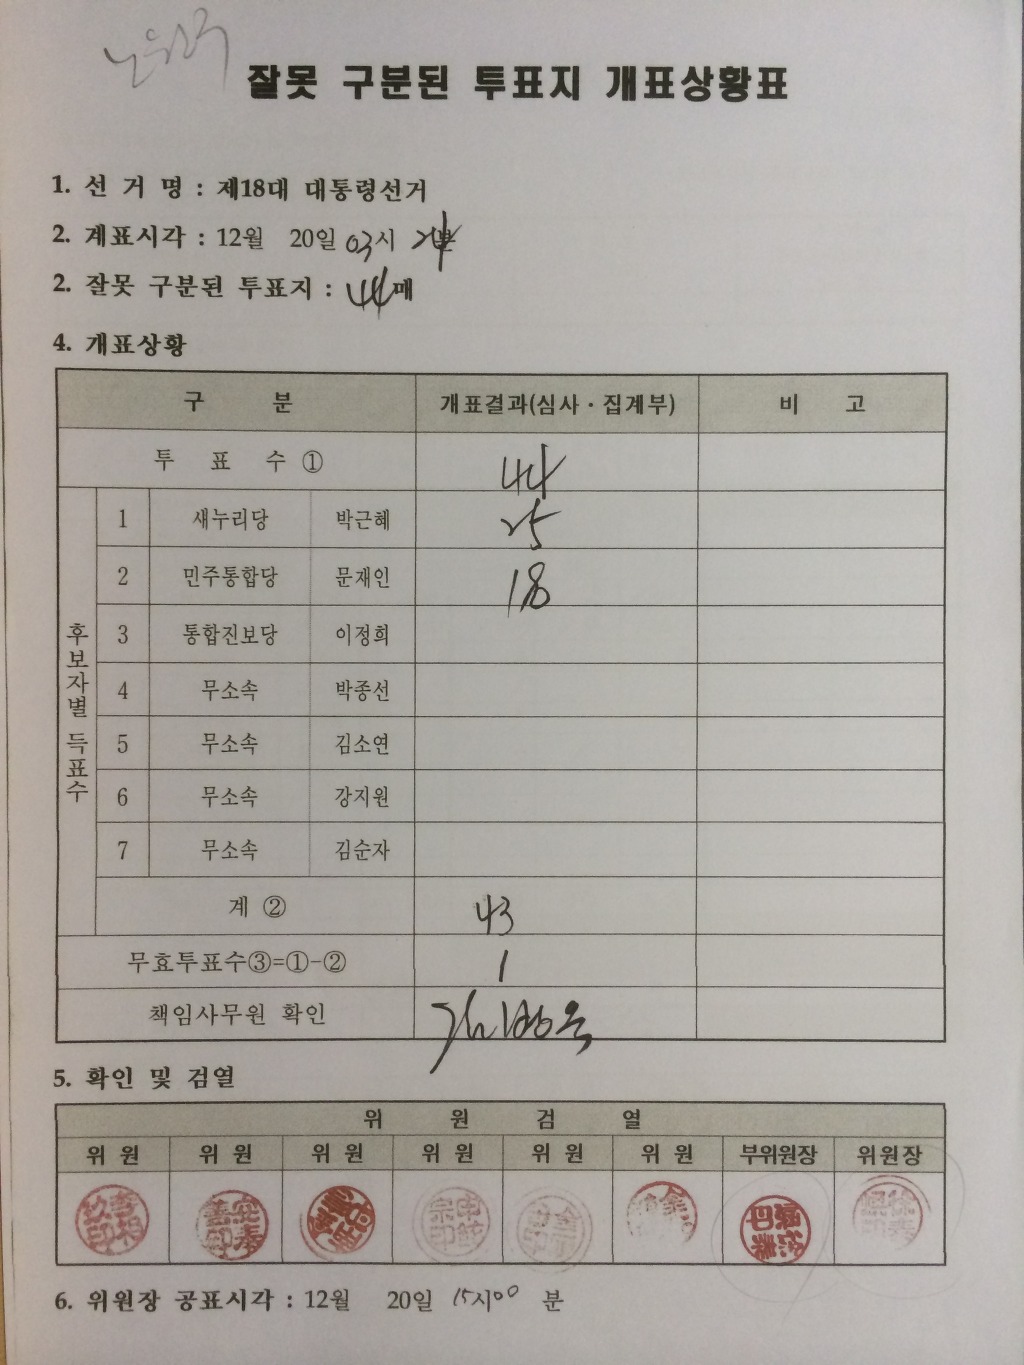 노원구
잘못 구분된 투표지 개표상황표
1. 선 거 명 : 제18대 대통령선거
2. 계표시각 : 12월 20일 03시 분
2. 잘못 구분된 투표지 : 44매
4. 개표상황
구 분 개표결과(심사·집계부) 비 고
투 표 수 ① 44
후보자별 득표수
1 새누리당 박근혜 25
2 민주통합당 문재인 18
3 통합진보당 이정희
4 무소속 박종선
5 무소속 김소연
6 무소속 강지원
7 무소속 김순자
계 ② 43
무효투표수③=①-② 1
책임사무원 확인
5. 확인 및 검열
위 원 검 열
위 원 위 원 위 원 위 원 위 원 위 원 부위원장 위원장
6. 위원장 공표시각 : 12월 20일 15시 00 분